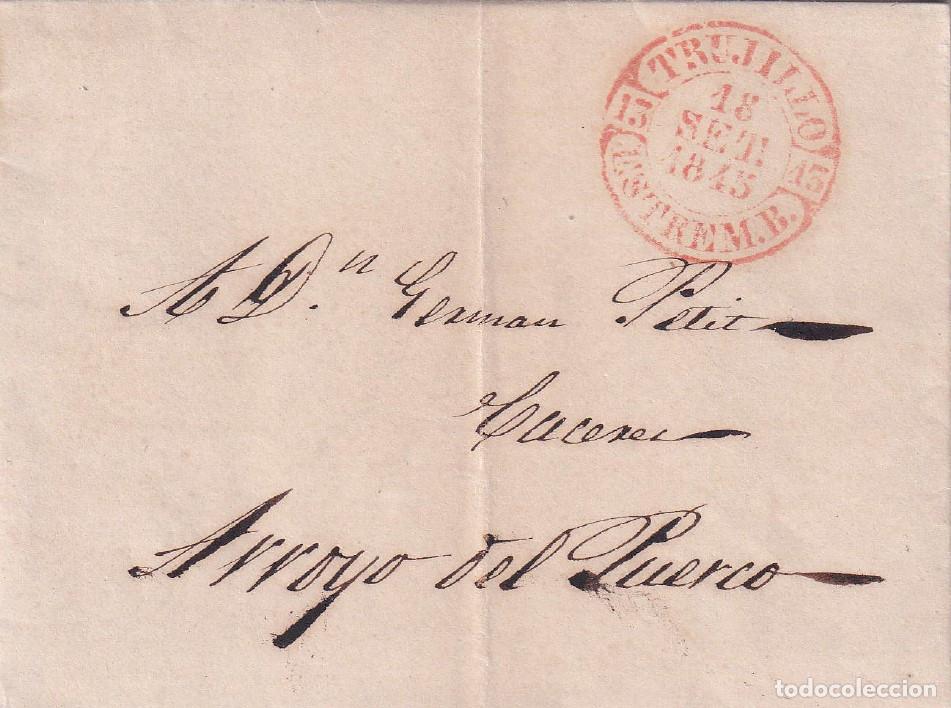 TRUJILLO
15 15
18
SET.
1845
ESTREM.B.
A D.n German Petit
Caceres
Arroyo del Puerco
todocoleccion